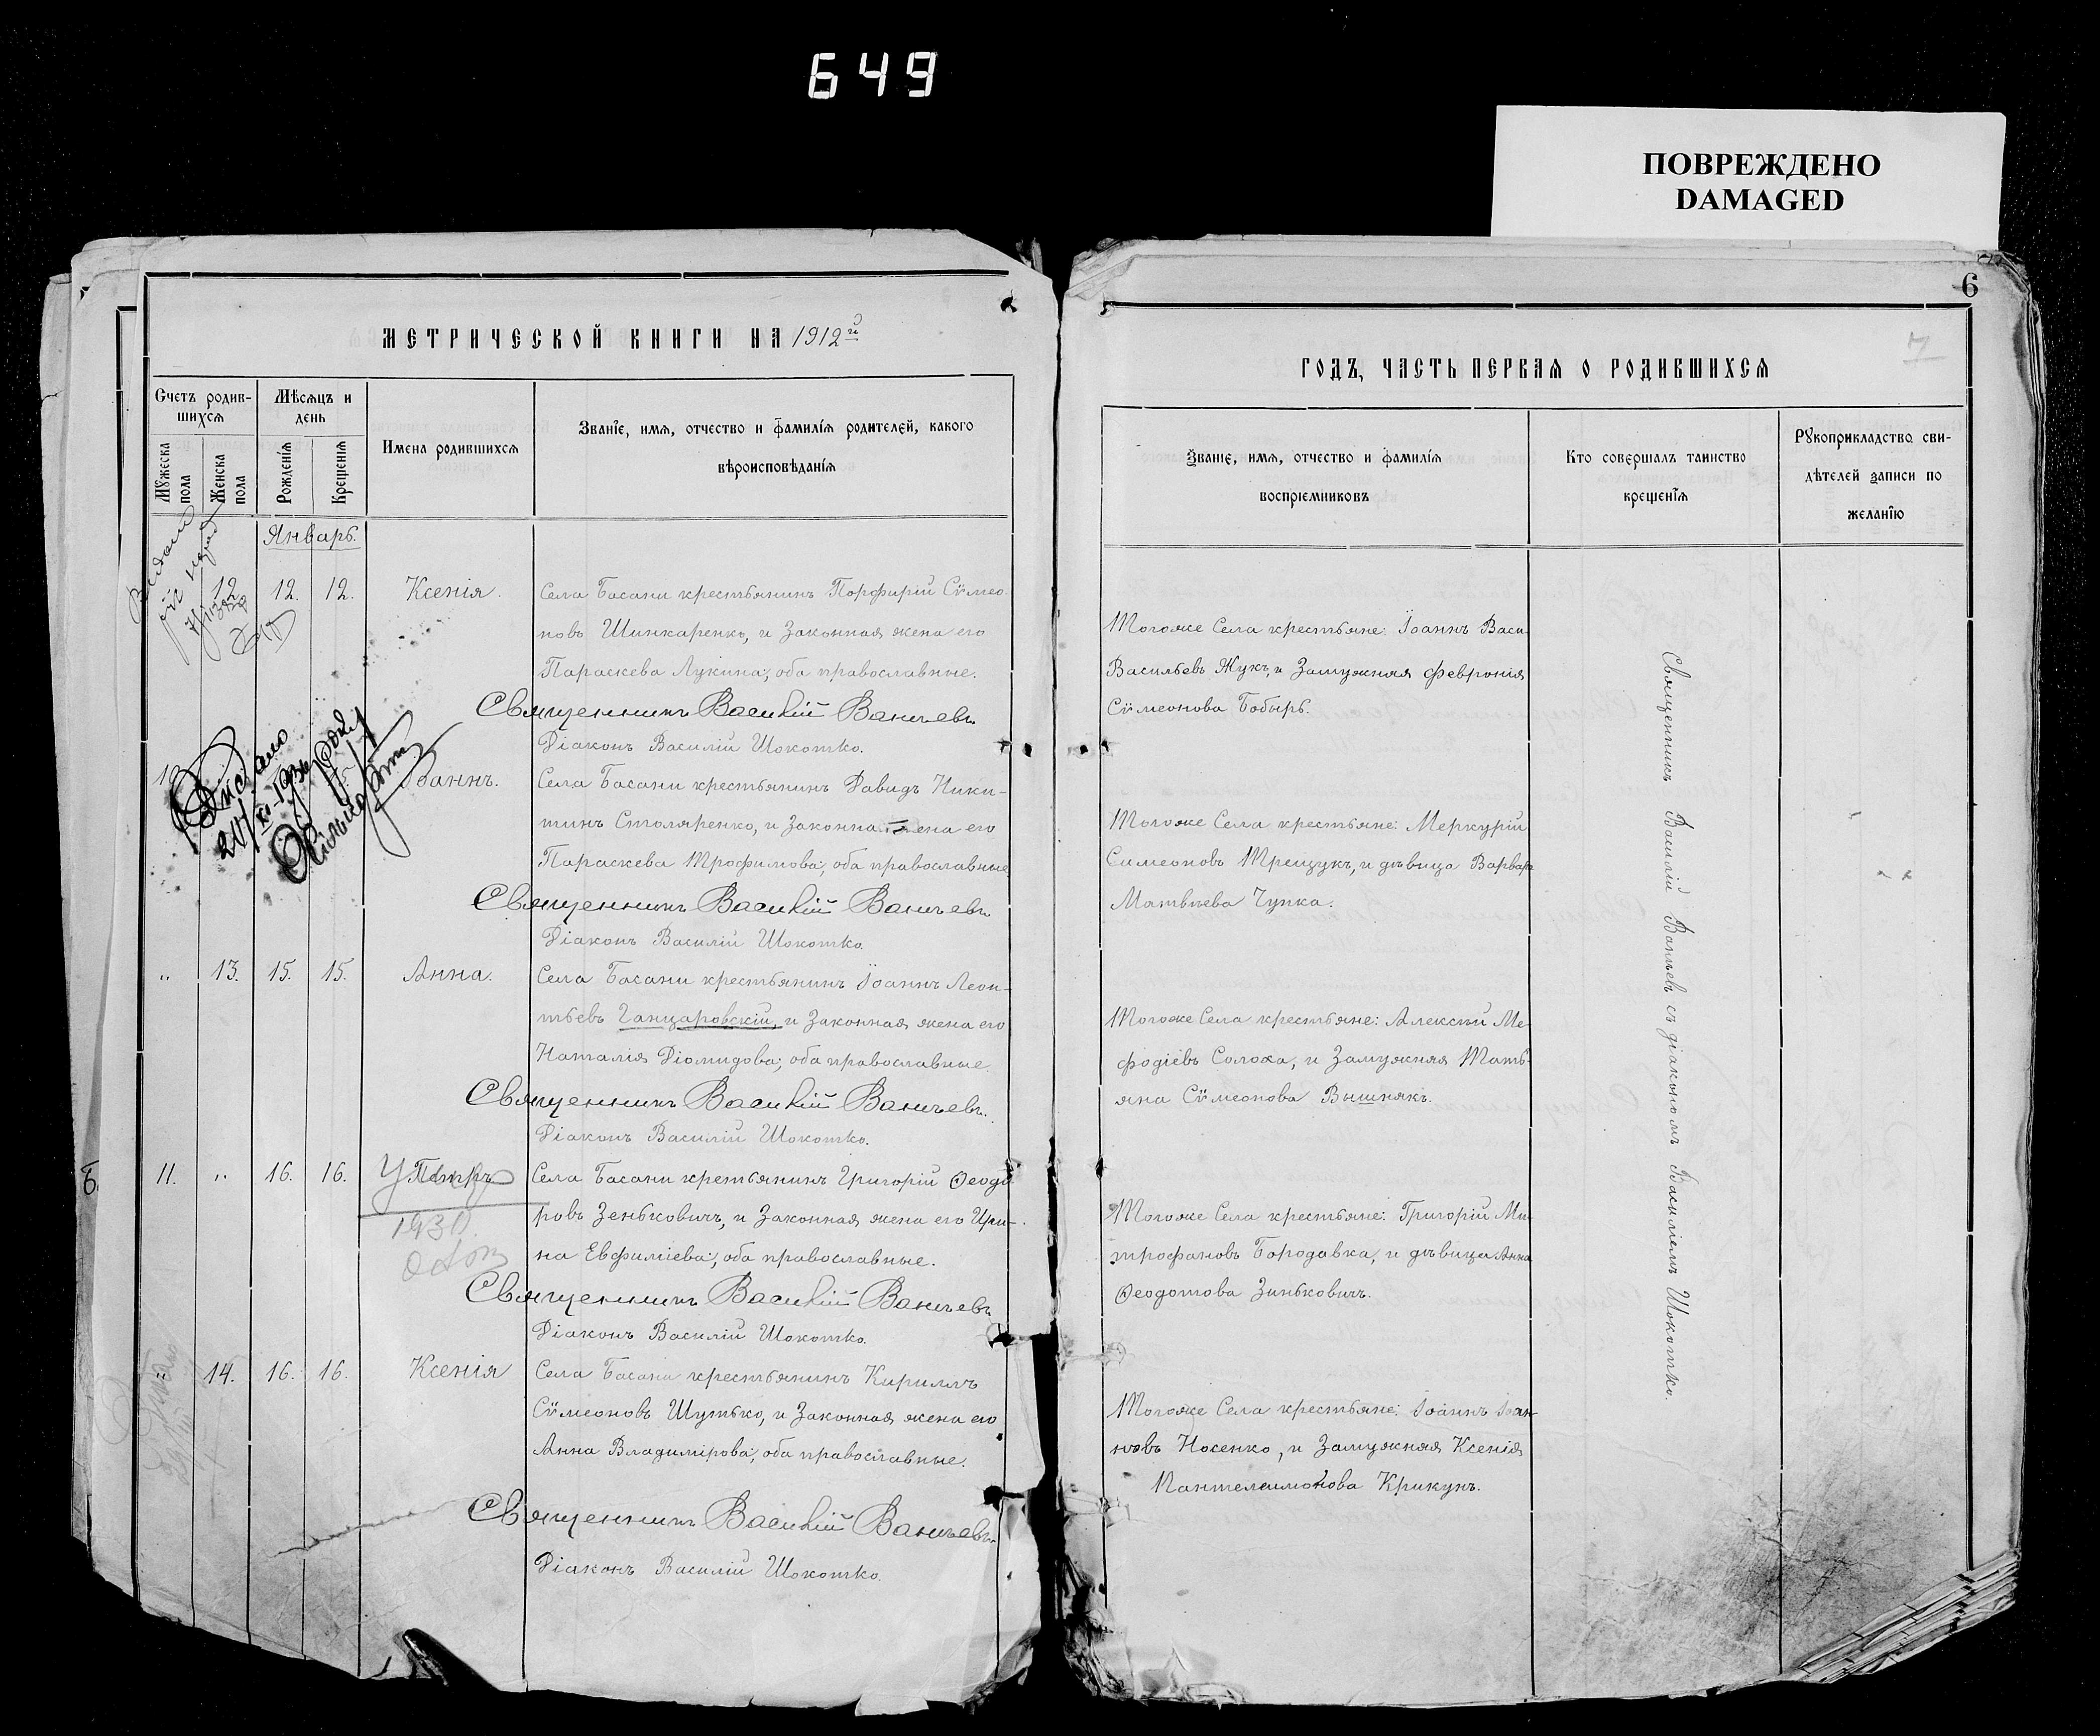 649
ПОВРЕЖДЕНО
DAMAGED
МЕТРИЧЕСКОЙ КНИГИ НА 1912й
Счетъ родив-
шихся
Мѣсяцъ и
день
Мужеска пола
Женска пола
Рожденія
Крещенія
Имена родившихся
Званіе, имя, отчество и фамилія родителей, какого
вѣроисповѣданія
Январь.
12 12. 12. Ксенія.
Села Басани крестьянинъ Порфирій Сѵмео-
новъ Шинкаренко, и законная жена его
Параскева Лукина, оба православные.
Священникъ Василій Ваньевъ
Діаконъ Василій Шокотко.
Видано
Іоаннъ.
Села Басани крестьянинъ Давидъ Ники-
тинъ Столяренко, и Законная жена его
Параскева Трофимова, оба православные
Священникъ Василій Ваньевъ
Діаконъ Василій Шокотко.
" 13. 15. 15. Анна.
Села Басани крестьянинъ Іоаннъ Леон-
тьевъ Ганцаровскій, и Законная жена его
Наталія Діомидова, оба православные.
Священникъ Василій Ваньевъ.
Діаконъ Василій Шокотко.
11. " 16. 16. Петръ
1930
Села Басани крестьянинъ Григорій Ѳеодо
ровъ Зеньковичъ, и Законная жена его Ири-
на Евфиміева, оба православные.
Священникъ Василій Ваньевъ
Діаконъ Василій Шокотко.
" 14. 16. 16. Ксенія
Села Басани крестьянинъ Кириллъ
Сѵмеоновъ Шутько, и Законная жена его
Анна Владимірова, оба православные.
Священникъ Василій Ваньевъ
Діаконъ Василій Шокотко.
6
7
ГОДЪ, ЧАСТЬ ПЕРВАЯ О РОДИВШИХСЯ
Званіе, имя, отчество и фамилія
воспріемниковъ
Кто совершалъ таинство
крещенія
Рукоприкладство сви-
дѣтелей записи по
желанію
Тогоже Села крестьяне: Іоаннъ Васи-
Васильевъ Жукъ, и Замужняя Февронія
Сѵмеонова Бобырь.
Тогоже Села крестьяне: Меркурій
Симеоновъ Трещукъ, и дѣвица Варвара
Матвѣева Чупка.
Тогоже Села крестьяне: Алексѣй Ме-
фодіевъ Солоха, и Замужняя Тать-
яна Сѵмеонова Вышнякъ.
Тогоже Села крестьяне: Григорій Ми-
трофановъ Бородавка, и дѣвица Анна
Ѳеодотова Зиньковичъ.
Тогоже Села крестьяне: Іоаннъ Іоан-
новъ Носенко, и Замужняя Ксенія
Пантелеимонова Крикунъ.
Священникъ Василій Ваньевъ съ діакономъ Василіемъ Шокотко.